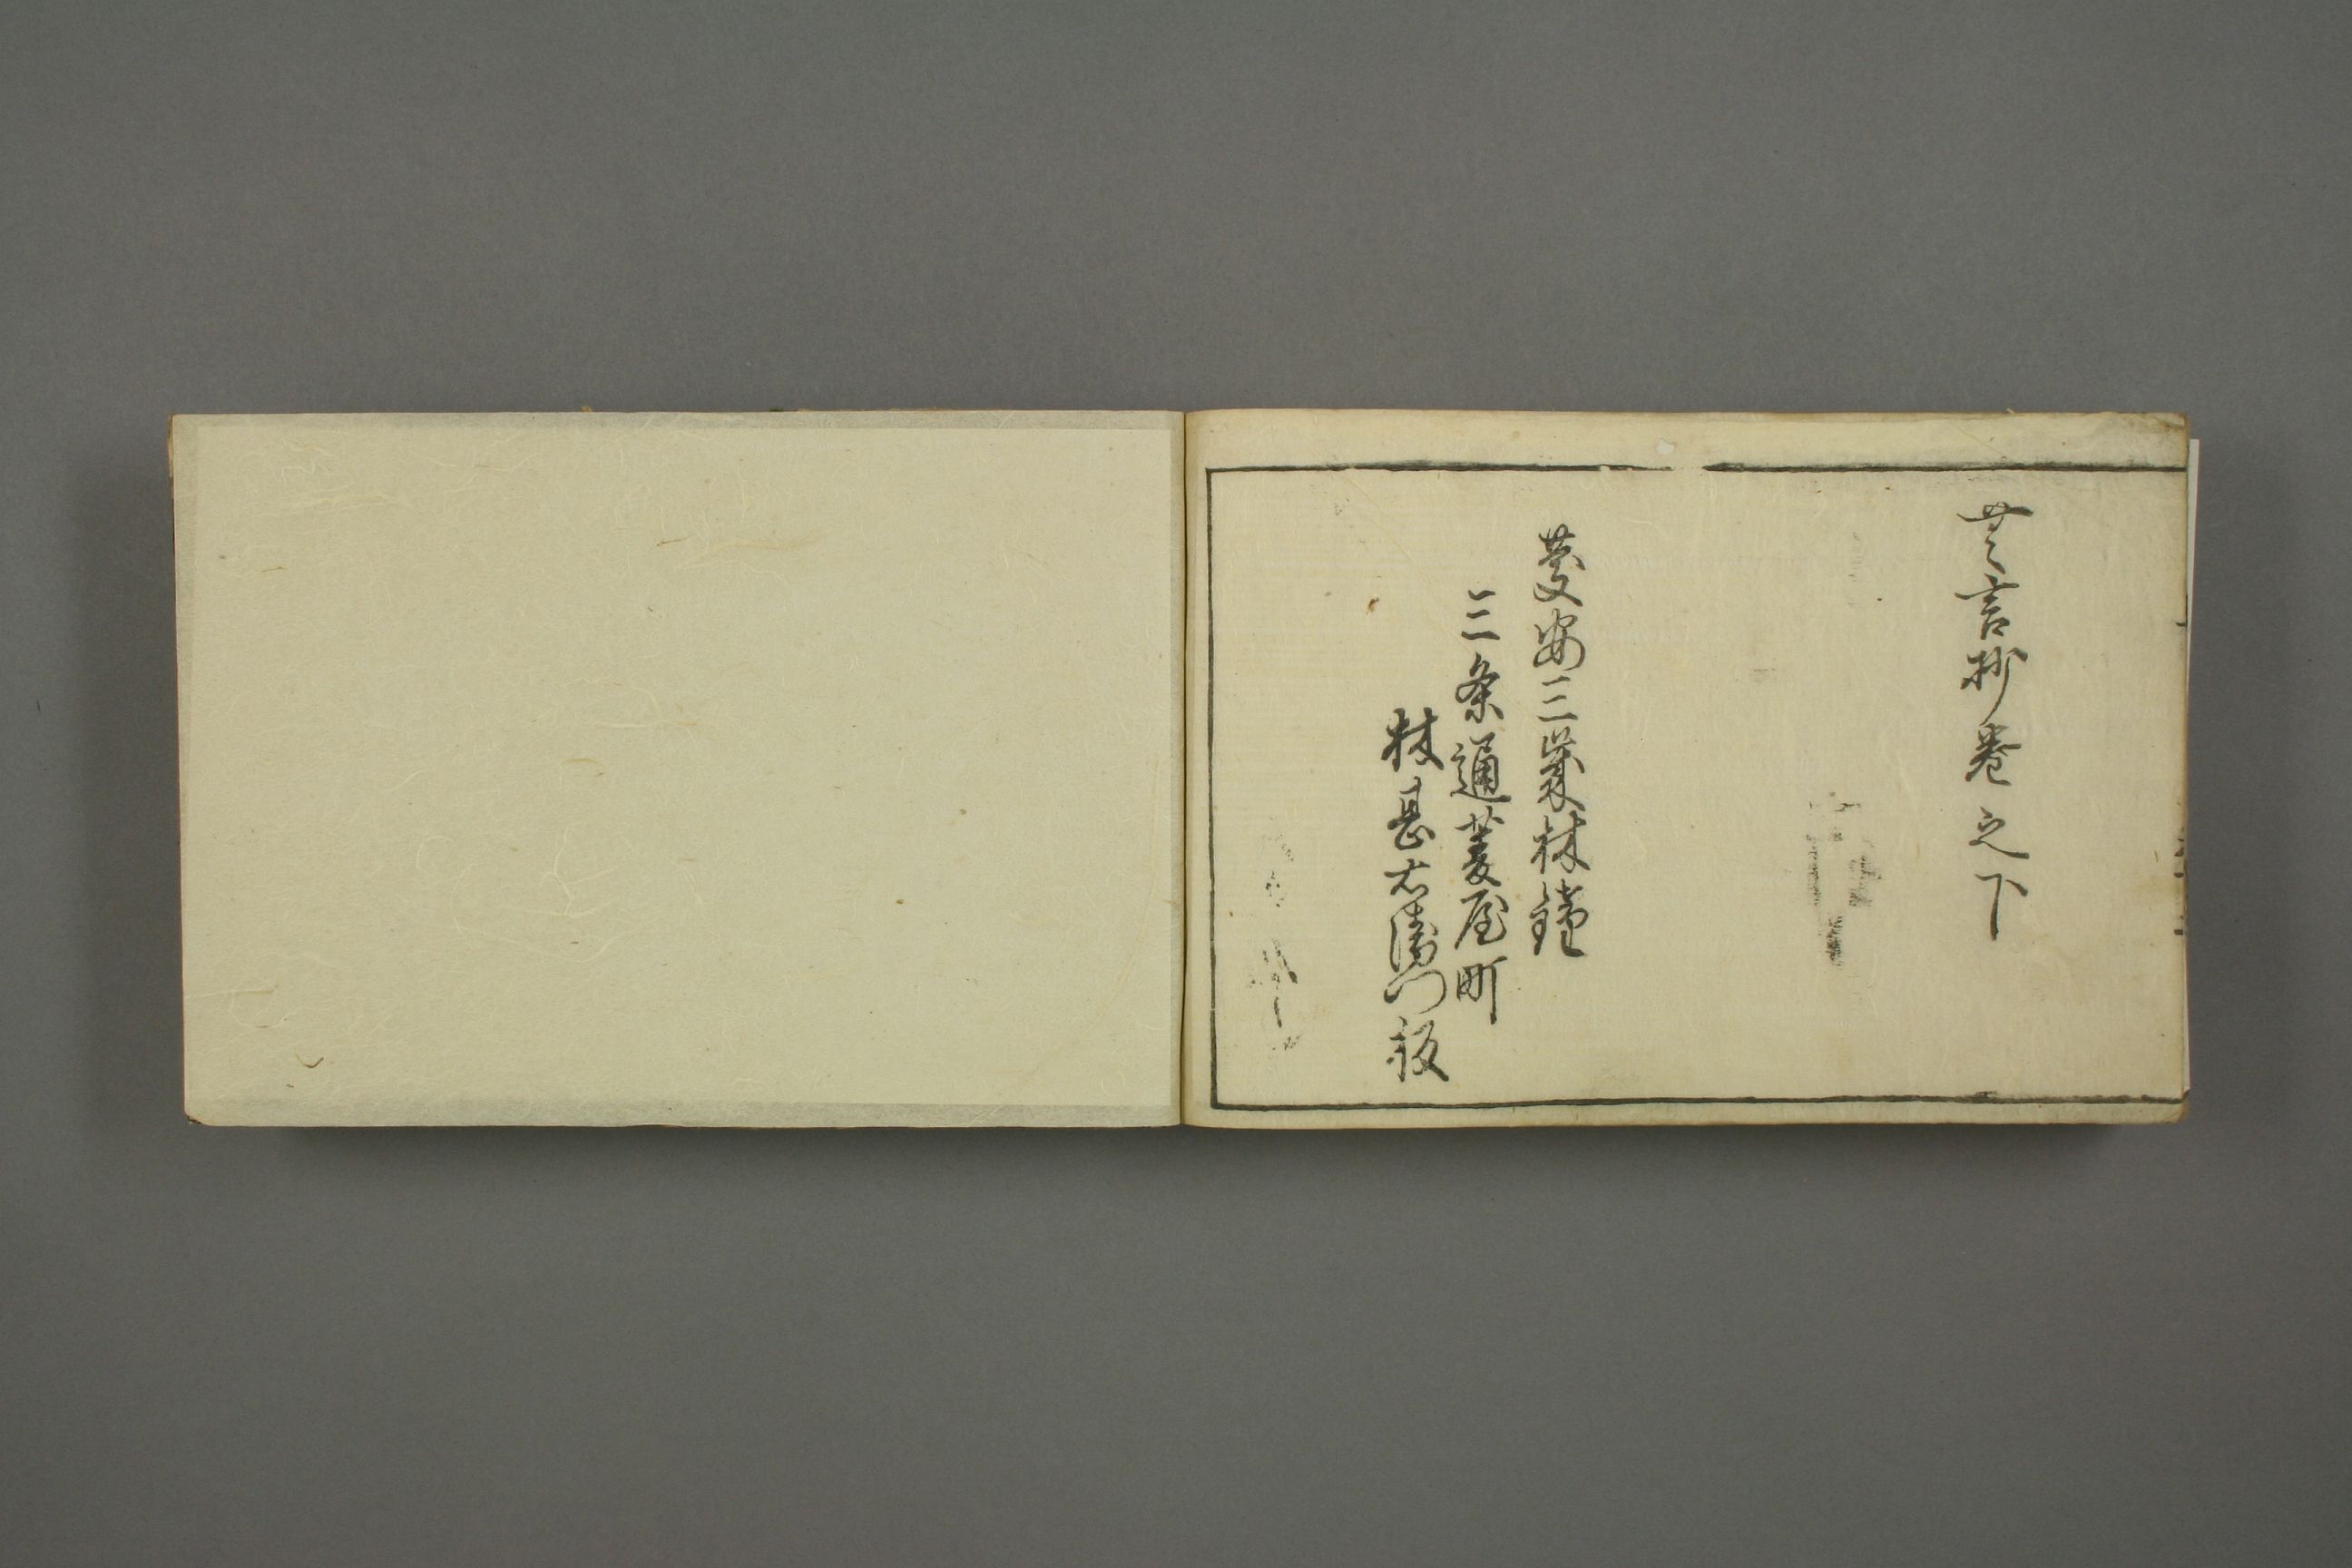 無言抄巻之下
慶安三歳林鐘
三条通菱屋町
林甚右衛門板